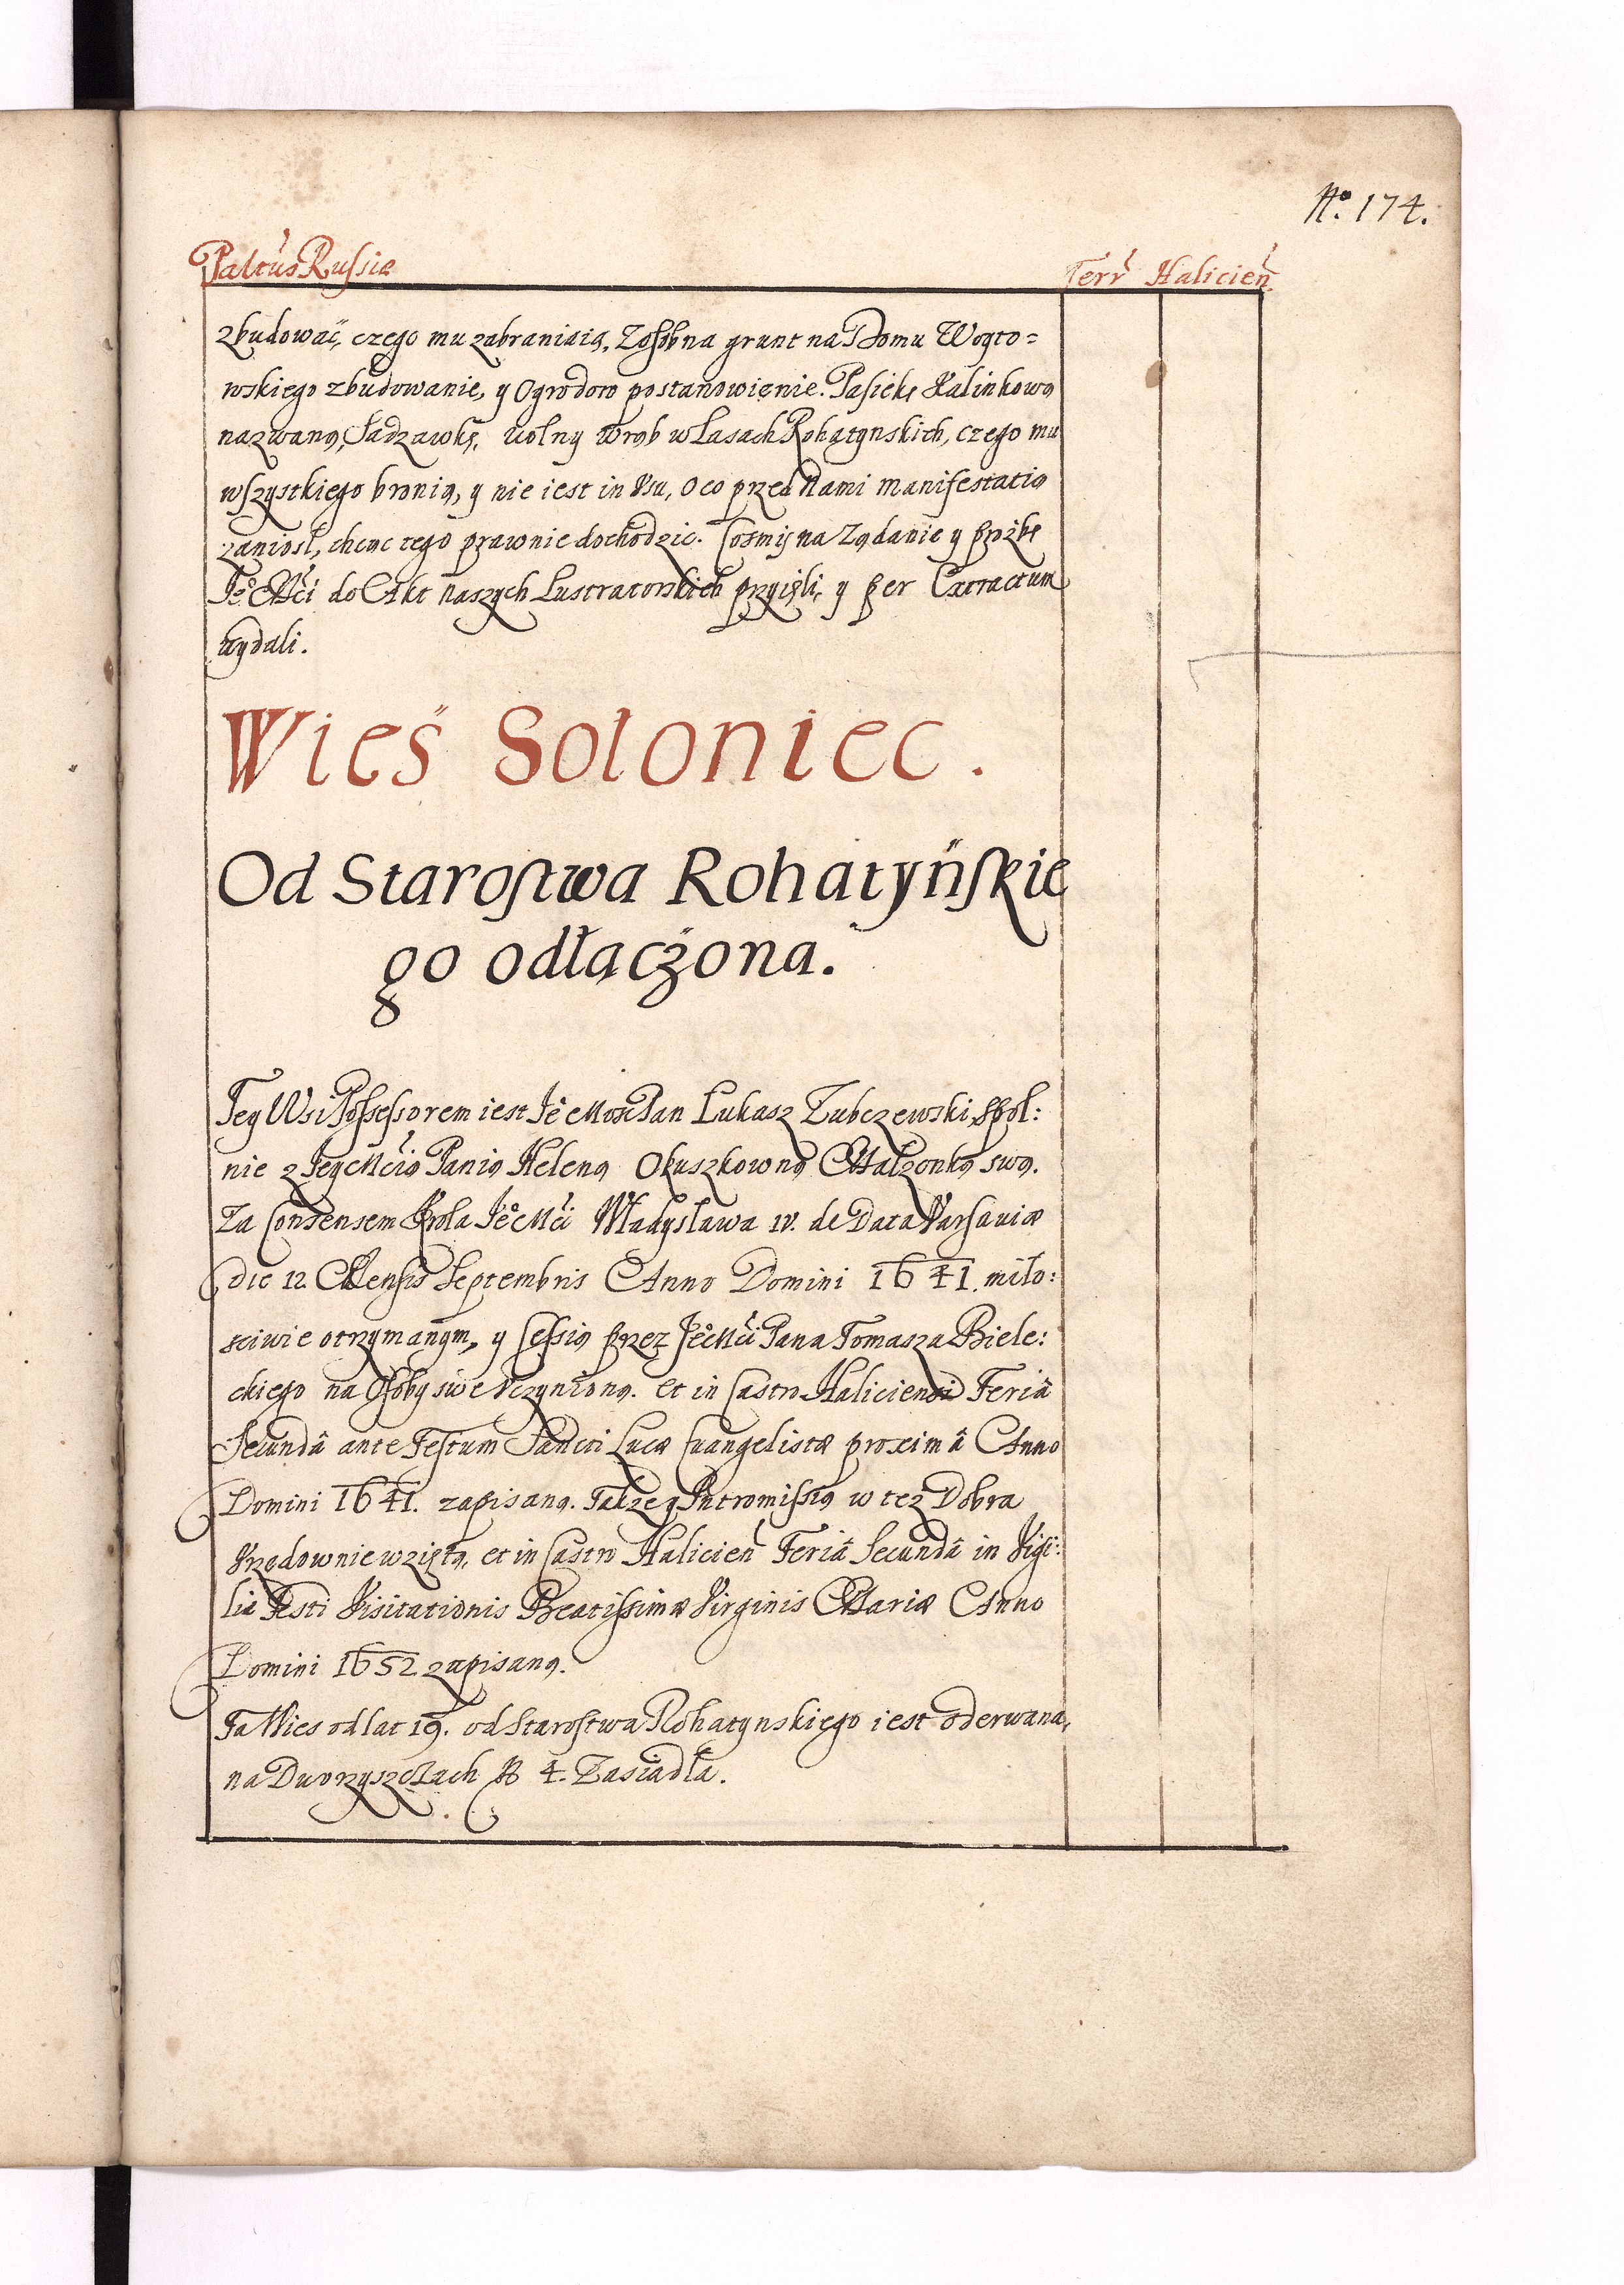 No. 174.
Paltus Russiæ
Terr Halicien
zbudować, czego mu zabraniaią. Zosobna grunt na Domu Woyto=
wskiego zbudowanie, y Ogrodow postanowienie. Pasiekę Kalinkową
nazwaną, Sadzawkę, wolny wrąb w Lasach Rohatynskich, czego mu
wszystkiego bronią, y nie iest in Usu, o co przed Nami manifestatią
zaniosł, chcąc tego prawnie dochodzic. Cosmy na Ządanie y proźbę
Je° Mći do Akt naszych Lustratorskich przyięli, y per Extractum
wydali.
Wieś Soloniec.
Od Starostwa Rohatyńskie
go odłączona.
Tey Wsi Possessorem iest Je° Mość Pan Lukasz Zubczewski, spol:
nie z Jey Mćią Panią Heleną Okuszkowną Małzonką swą.
Za Consensem Krola Je° Mći Władysława IV. de Data Varsauiæ
die 12 Mensis Septembris Anno Domini 1641. miło:
sciwie otrzymanym, y Cessią przez Je° Mći Pana Tomasza Biele:
ckiego na Osoby swe uczynioną. et in Castro Haliciensi Feriâ
Secundâ ante Festum Sancti Lucæ Euangelistæ proximâ Anno
Domini 1641. zapisaną. Takze y Intromissią w tez Dobra
Urzędownie wziętą, et in Castro Halicien Feriâ Secundâ in Vigi:
lia Festi Visitationis Beatissimæ Virginis Mariæ Anno
Domini 1652 zapisaną.
Ta Wies od lat 19. od Starostwa Rohatynskiego iest oderwana,
na Dworzyszczach N 4. Zasiadła.